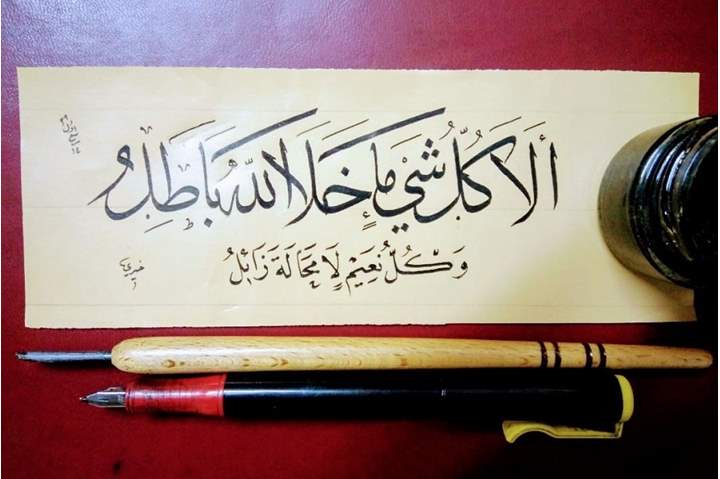 ألَا كُلُّ شَيْ مَا خَلَا اللّٰهَ بَاطِلُ
وَكُلُّ نَعِيْمٍ لَا مَحَالَةَ زَائِلُ
خيري